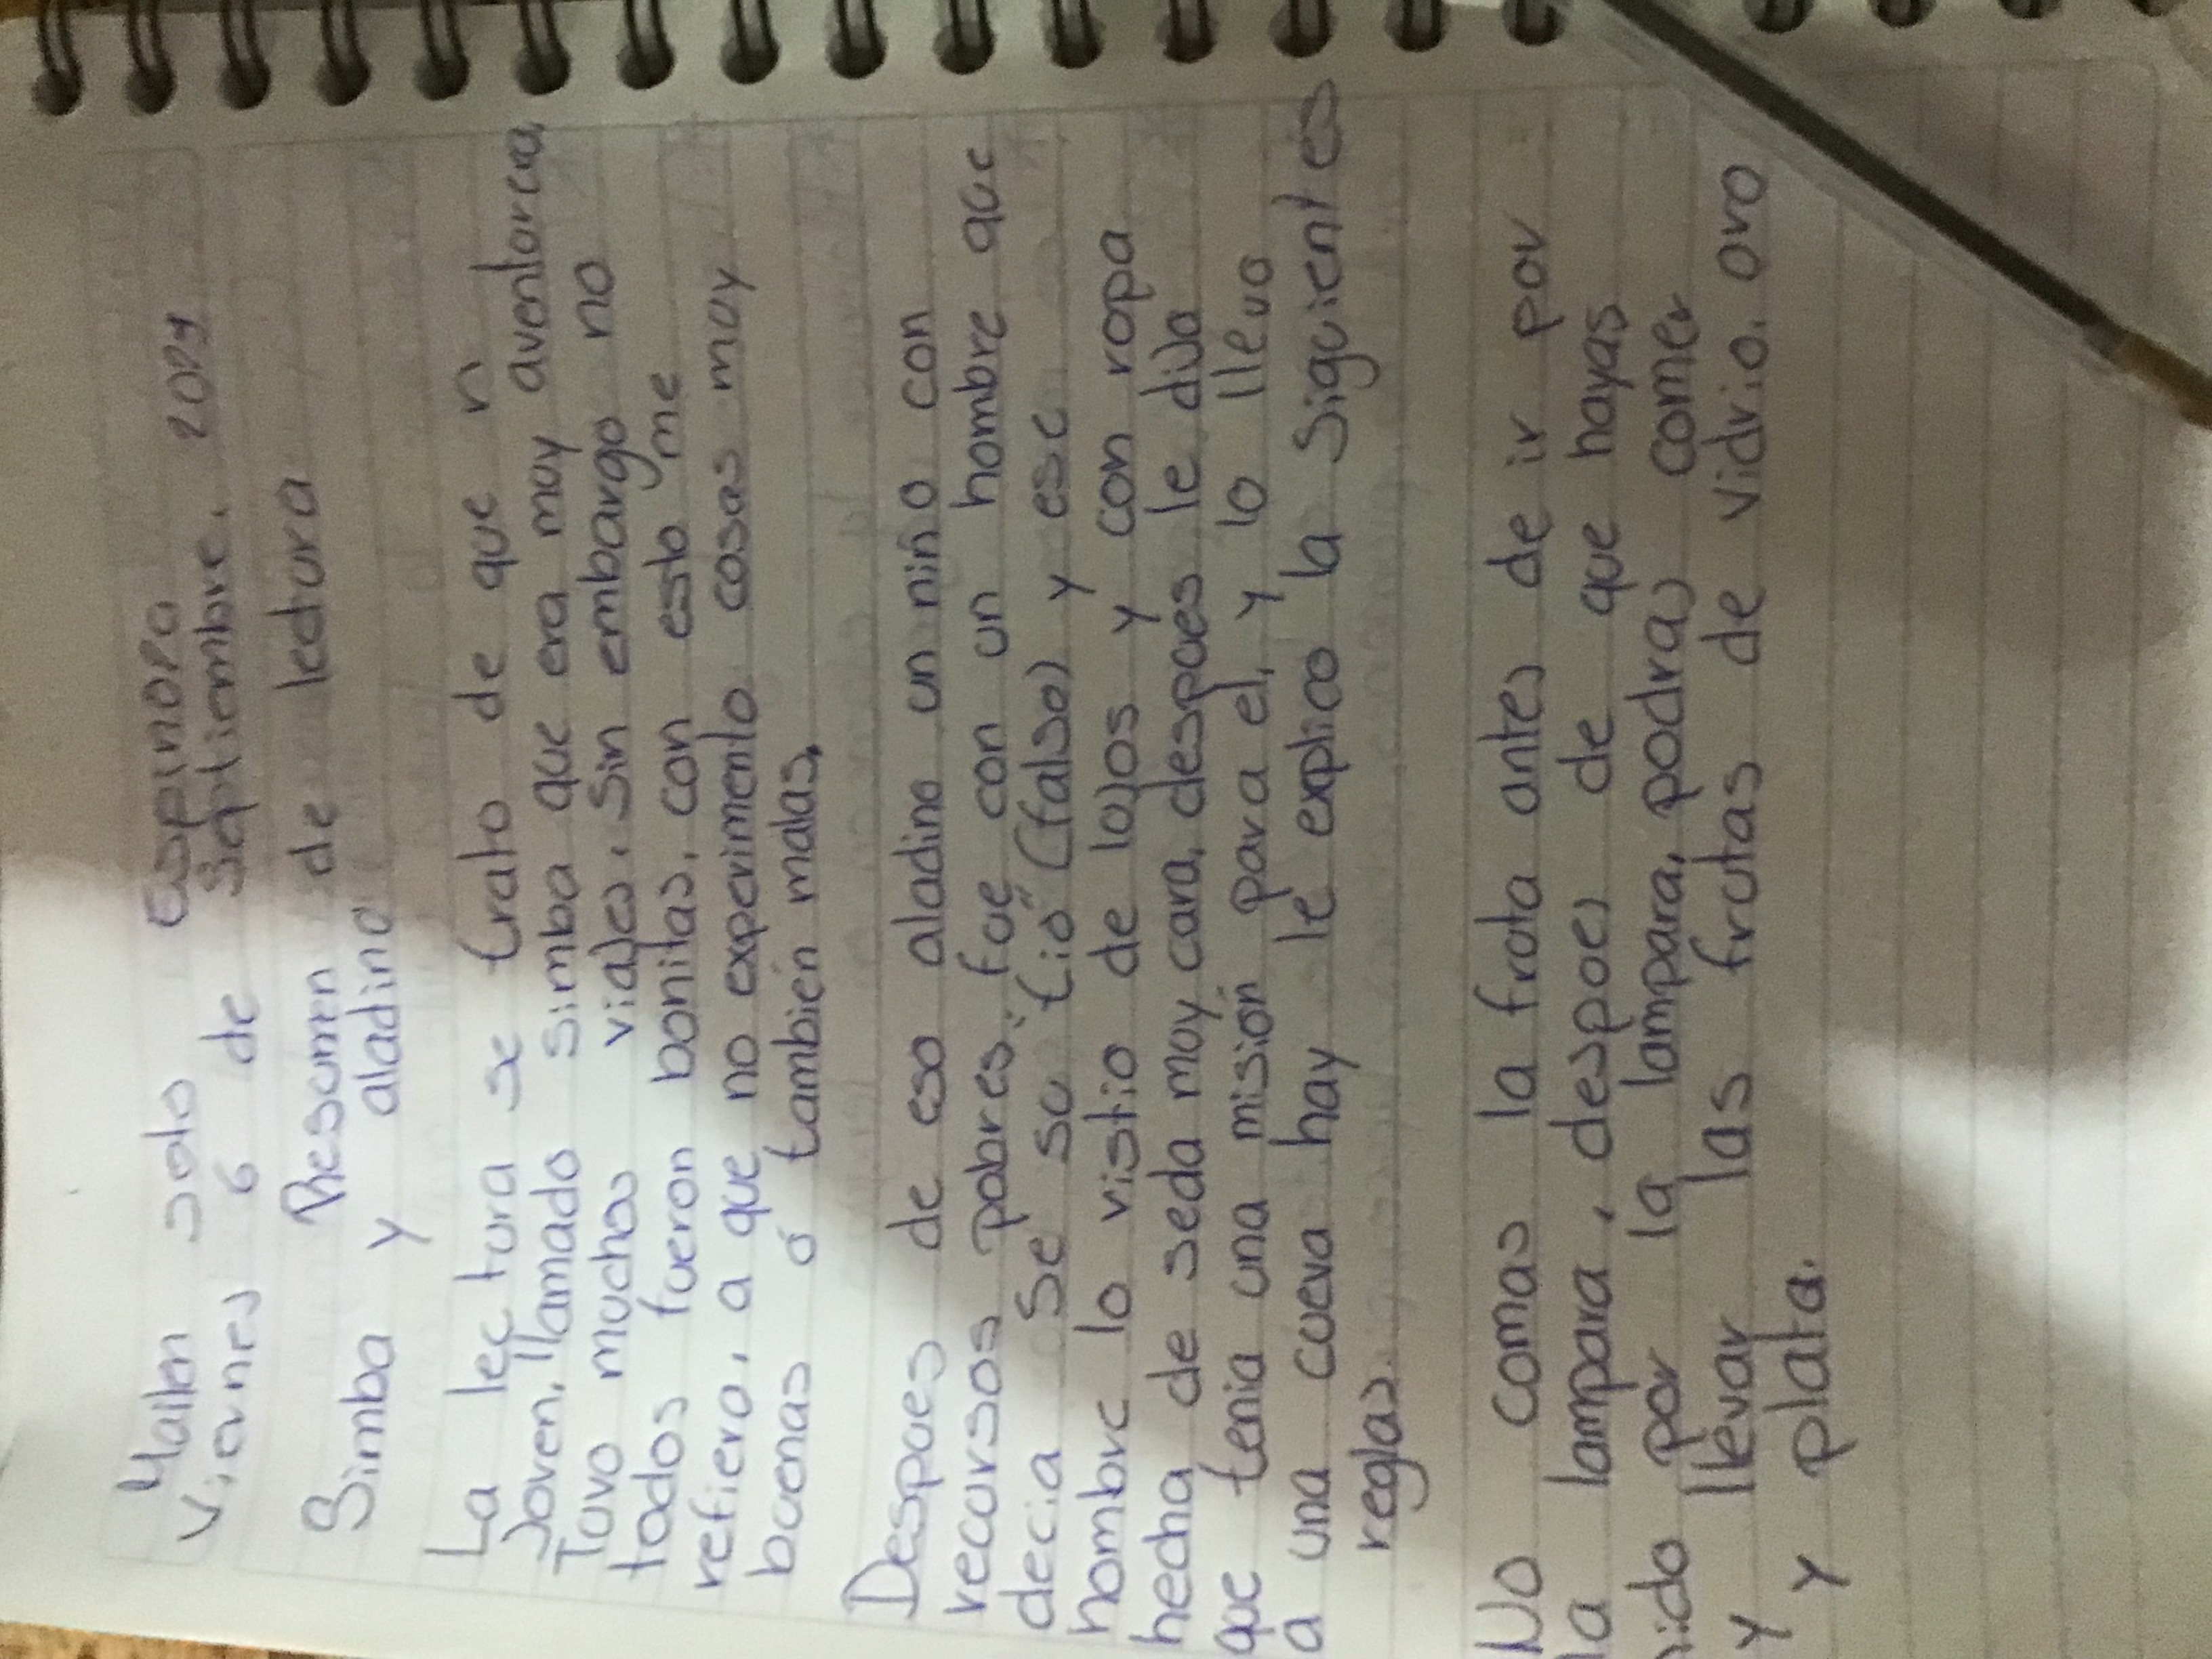 Mailen soto espinopa
Viernes 6 de septiembre. 2024
Resumen de lectura
Simba y aladino
La lectura se trato de que n
Joven, llamado simba que era muy aventorera
Tuvo muchos viajes. Sin embargo no
todos fueron bonitas, con esto me
refiero, a que no experimento cosas muy
buenas ó tambien malas.
Despues de eso aladino un niño con
recursos pobres. fue con un hombre que
decia se su "tio" (falso) y ese
hombre lo vistio de lojos y con ropa
hecha de seda muy cara, despues le dijo
que tenia una misión para el, y lo llevo
a una cueva hay le explico la siguientes
reglas.
No comas la fruta antes de ir por
la lampara, despues de que hayas
nido por la lampara, podras comer
y llevar las frutas de vidrio. oro
y plata.